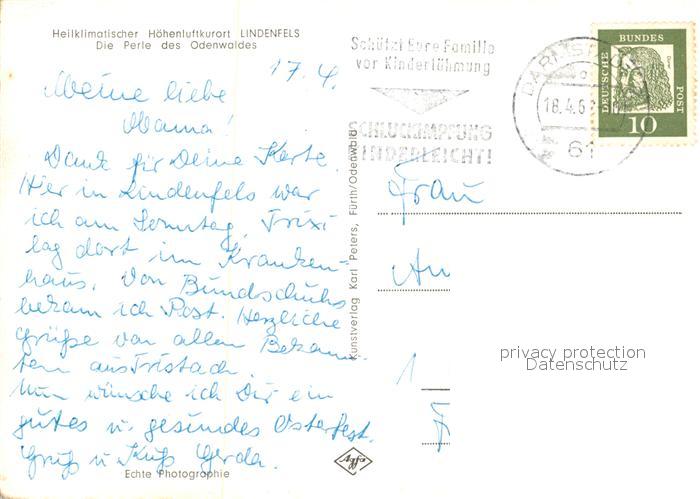 Heilklimatischer Höhenluftkurort LINDENFELS
Die Perle des Odenwaldes
17.4.
Meine liebe
Mama!
Dank für Deine Karte.
Hier in Lindenfels war
ich am Sonntag, Trixi
lag dort im Kranken-
haus. Von Bundschuhs
bekam ich Post. Herzliche
Grüße von allen Bekann-
ten aus Tristach.
Nun wünsche ich Dir ein
gutes u. gesundes Osterfest.
Gruß u Kuß Gerda.
Echte Photographie
Kunstverlag Karl Peters, Fürth/Odenwald
Agfa
Schützt Eure Familie
vor Kinderlähmung
SCHLUCKIMPFUNG
KINDERLEICHT!
DARMSTADT
18.4.6
61
DEUTSCHE
BUNDES
POST
10
Frau
An
1
F
privacy protection
Datenschutz